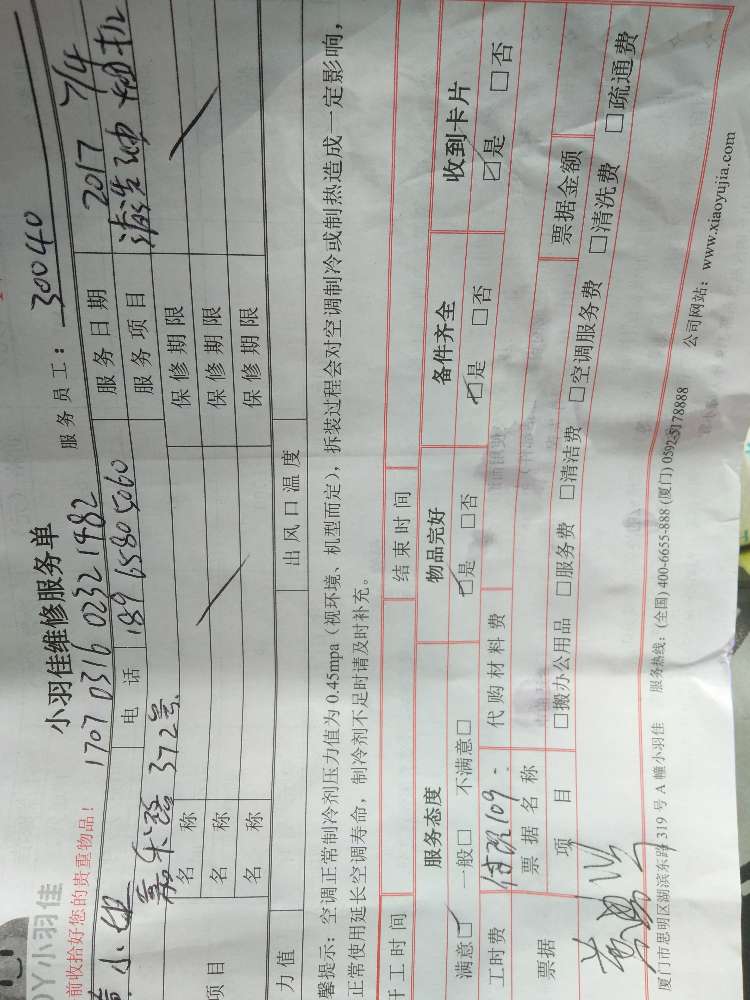 DY小羽佳
小羽佳维修服务单
服务员工：30040
前收拾好您的贵重物品！
1707 0316 0232 1982
服务日期 2017 7/4
小姐 电话 189 6580 5060
服务项目 清洗油烟机
嘉禾路 372号
项目 名称 保修期限
名称 保修期限
名称 保修期限
力值 出风口温度
馨提示：空调正常制冷剂压力值为 0.45mpa（视环境、机型而定），拆装过程会对空调制冷或制热造成一定影响，
正常使用延长空调寿命，制冷剂不足时请及时补充。
工时间 结束时间
服务态度 物品完好 备件齐全 收到卡片
满意☑ 一般□ 不满意□ ☑是 □否 ☑是 □否 ☑是 □否
工时费 109- 代购材料费
票据 票据名称 票据金额
项目 □搬办公用品 □服务费 □清洁费 □空调服务费 □清洗费 □疏通费
厦门市思明区湖滨东路 319 号 A 幢小羽佳 服务热线：(全国) 400-6655-888 (厦门) 0592-5178888 公司网站：www.xiaoyujia.com